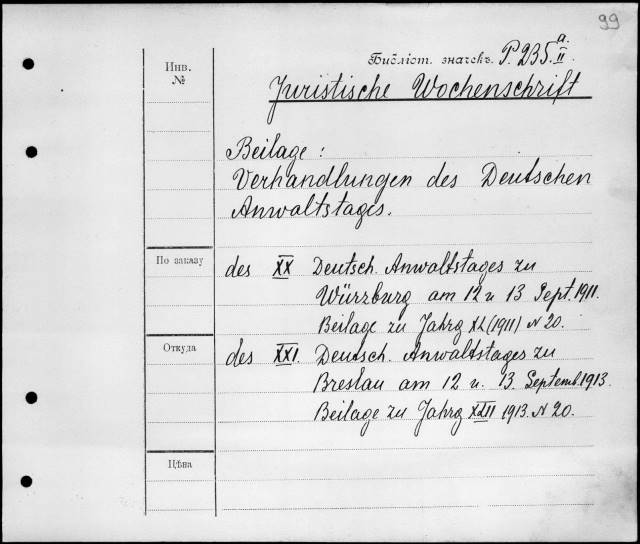 99
Библіот. значекъ P.235.a.II.
Инв.
№
Juristische Wochenschrift
Beilage:
Verhandlungen des Deutschen
Anwaltstages.
По заказу
des XX Deutsch. Anwaltstages zu
Würzburg am 12 u 13 Sept. 1911.
Beilage zu Jahrg XL (1911) N 20.
Откуда
des XXI. Deutsch. Anwaltstages zu
Breslau am 12 u. 13. Septemb. 1913.
Beilage zu Jahrg XLII 1913. N 20.
Цѣна